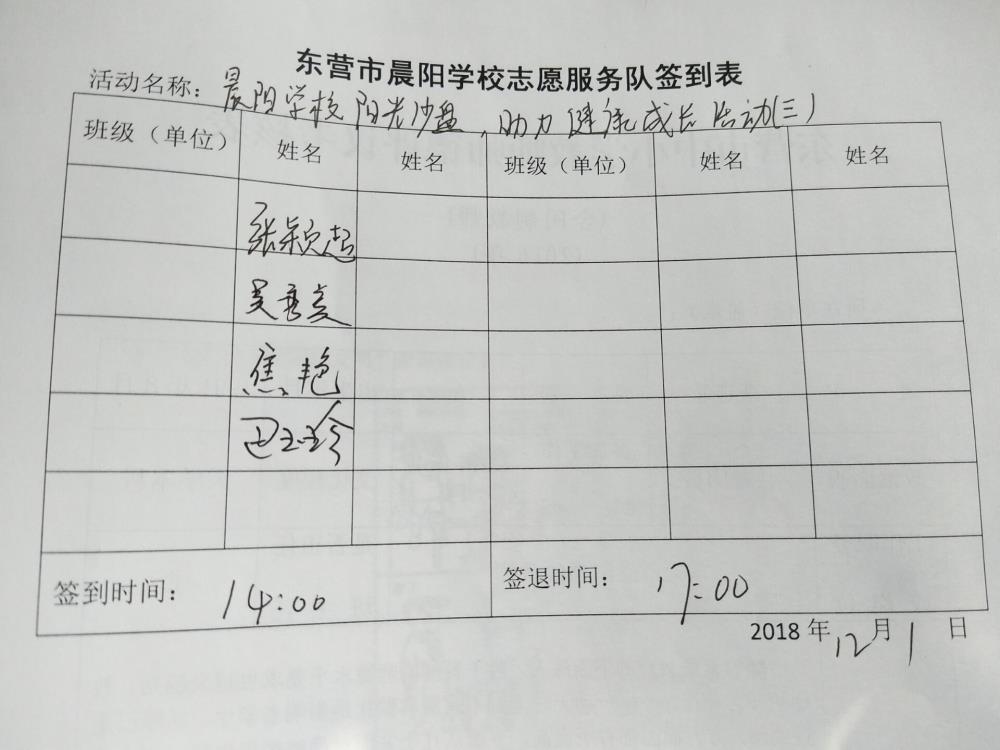 东营市晨阳学校志愿服务队签到表
活动名称：晨阳学校阳光沙盘，助力健康成长活动(三)
班级（单位） 姓名 姓名 班级（单位） 姓名 姓名
张颖超
吴秀美
焦艳
田玉珍
签到时间： 14:00 签退时间： 17:00
2018年12月1日